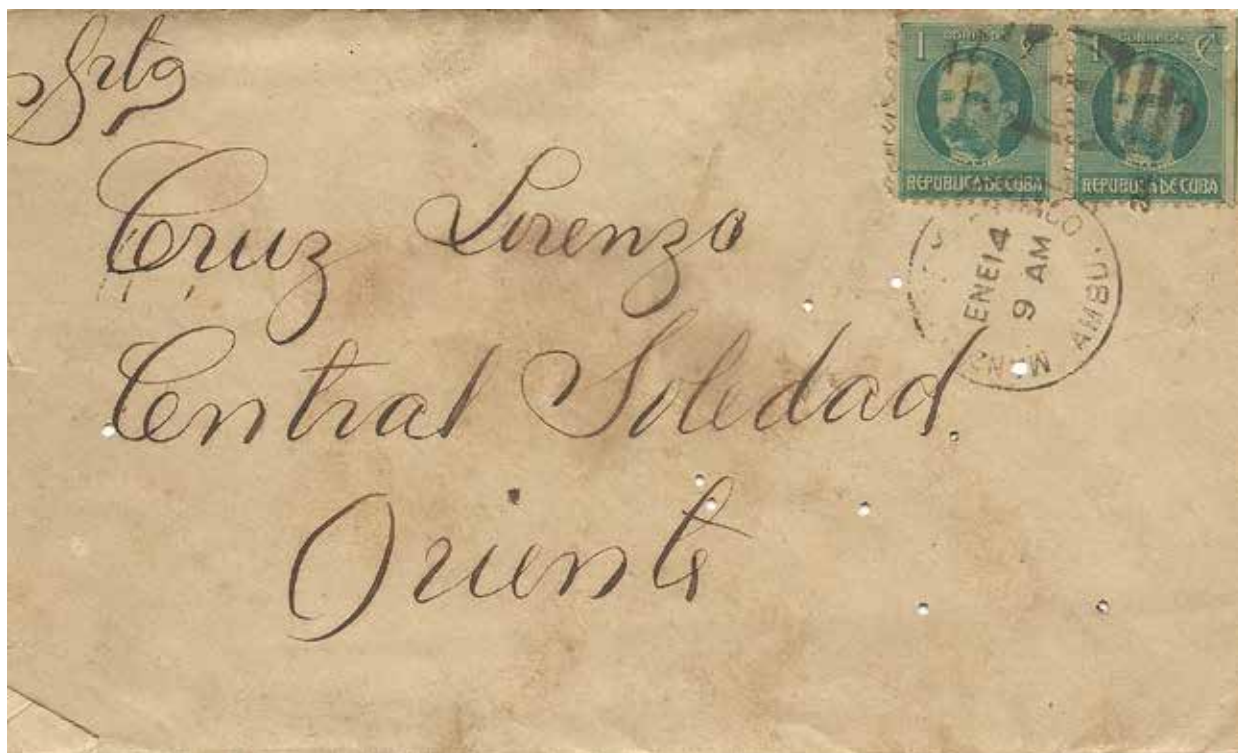 Srta
Cruz Lorenzo
Central Soledad.
Oriente
1 CORREOS ¢
REPUBLICA DE CUBA
1 CORREOS ¢
REPUBLICA DE CUBA
ENE 14
9 AM